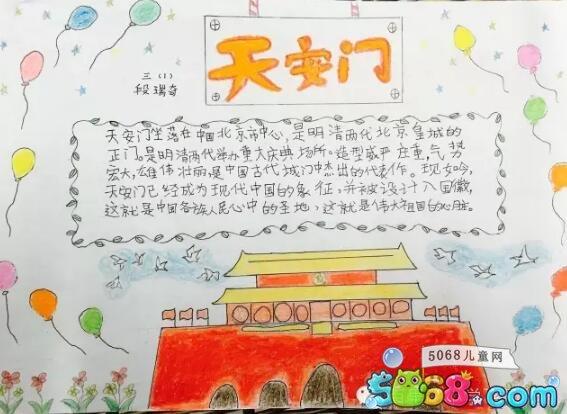 天安门
三（1）
段瑞奇
天安门坐落在中国北京市中心，是明清两代北京皇城的
正门。是明清两代举办重大庆典场所。造型威严庄重，气势
宏大，雄伟壮丽，是中国古代城门中杰出的代表作。现如今，
天安门已经成为现代中国的象征，并被设计入国徽，
这就是中国各族人民心中的圣地，这就是伟大祖国的心脏。
5068儿童网
5068.com